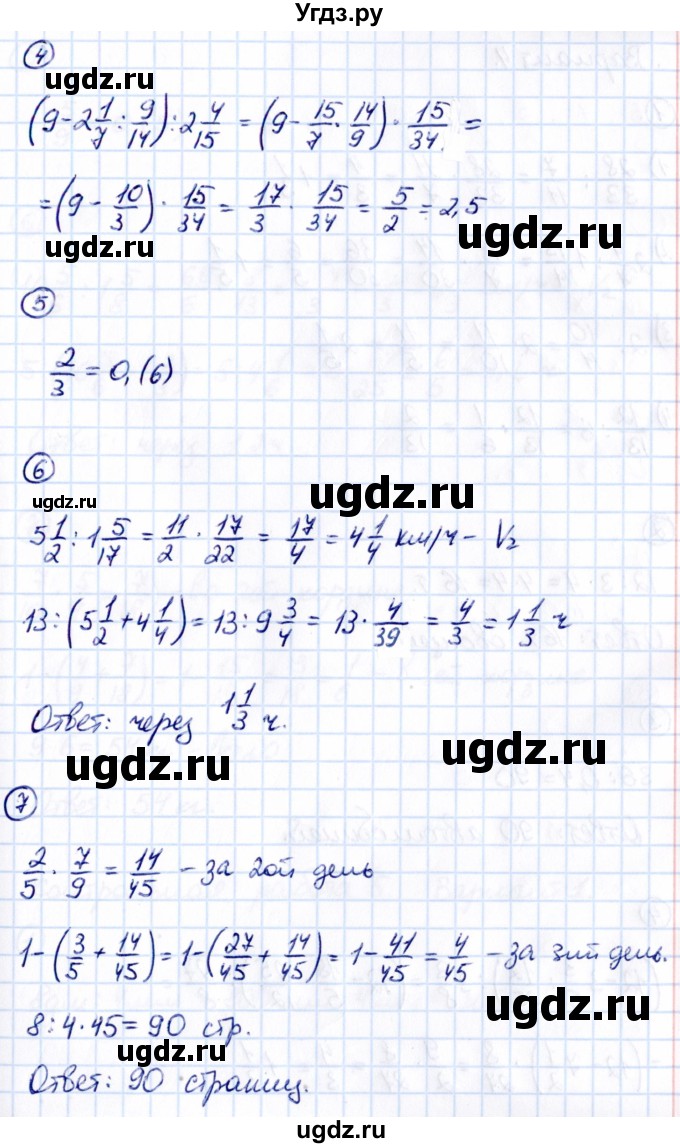 Угдз.ру
4
ugdz.ru
(9-2 1/7 : 9/14) : 2 4/15 = (9 - 15/7 · 14/9) · 15/34 =
= (9 - 10/3) · 15/34 = 17/3 · 15/34 = 5/2 = 2,5
ugdz.ru
5
ugdz.ru
2/3 = 0,(6)
6
ugdz.ru
ugdz.ru
5 1/2 : 1 5/17 = 11/2 · 17/22 = 17/4 = 4 1/4 км/ч - V₂
13 : (5 1/2 + 4 1/4) = 13 : 9 3/4 = 13 · 4/39 = 4/3 = 1 1/3 ч
Ответ: через 1 1/3 ч.
ugdz.ru
ugdz.ru
7
2/5 · 7/9 = 14/45 - за 2ой день
1 - (3/5 + 14/45) = 1 - (27/45 + 14/45) = 1 - 41/45 = 4/45 - за 3ий день.
ugdz.ru
8 : 4 · 45 = 90 стр.
ugdz.ru
Ответ: 90 страниц.
ugdz.ru